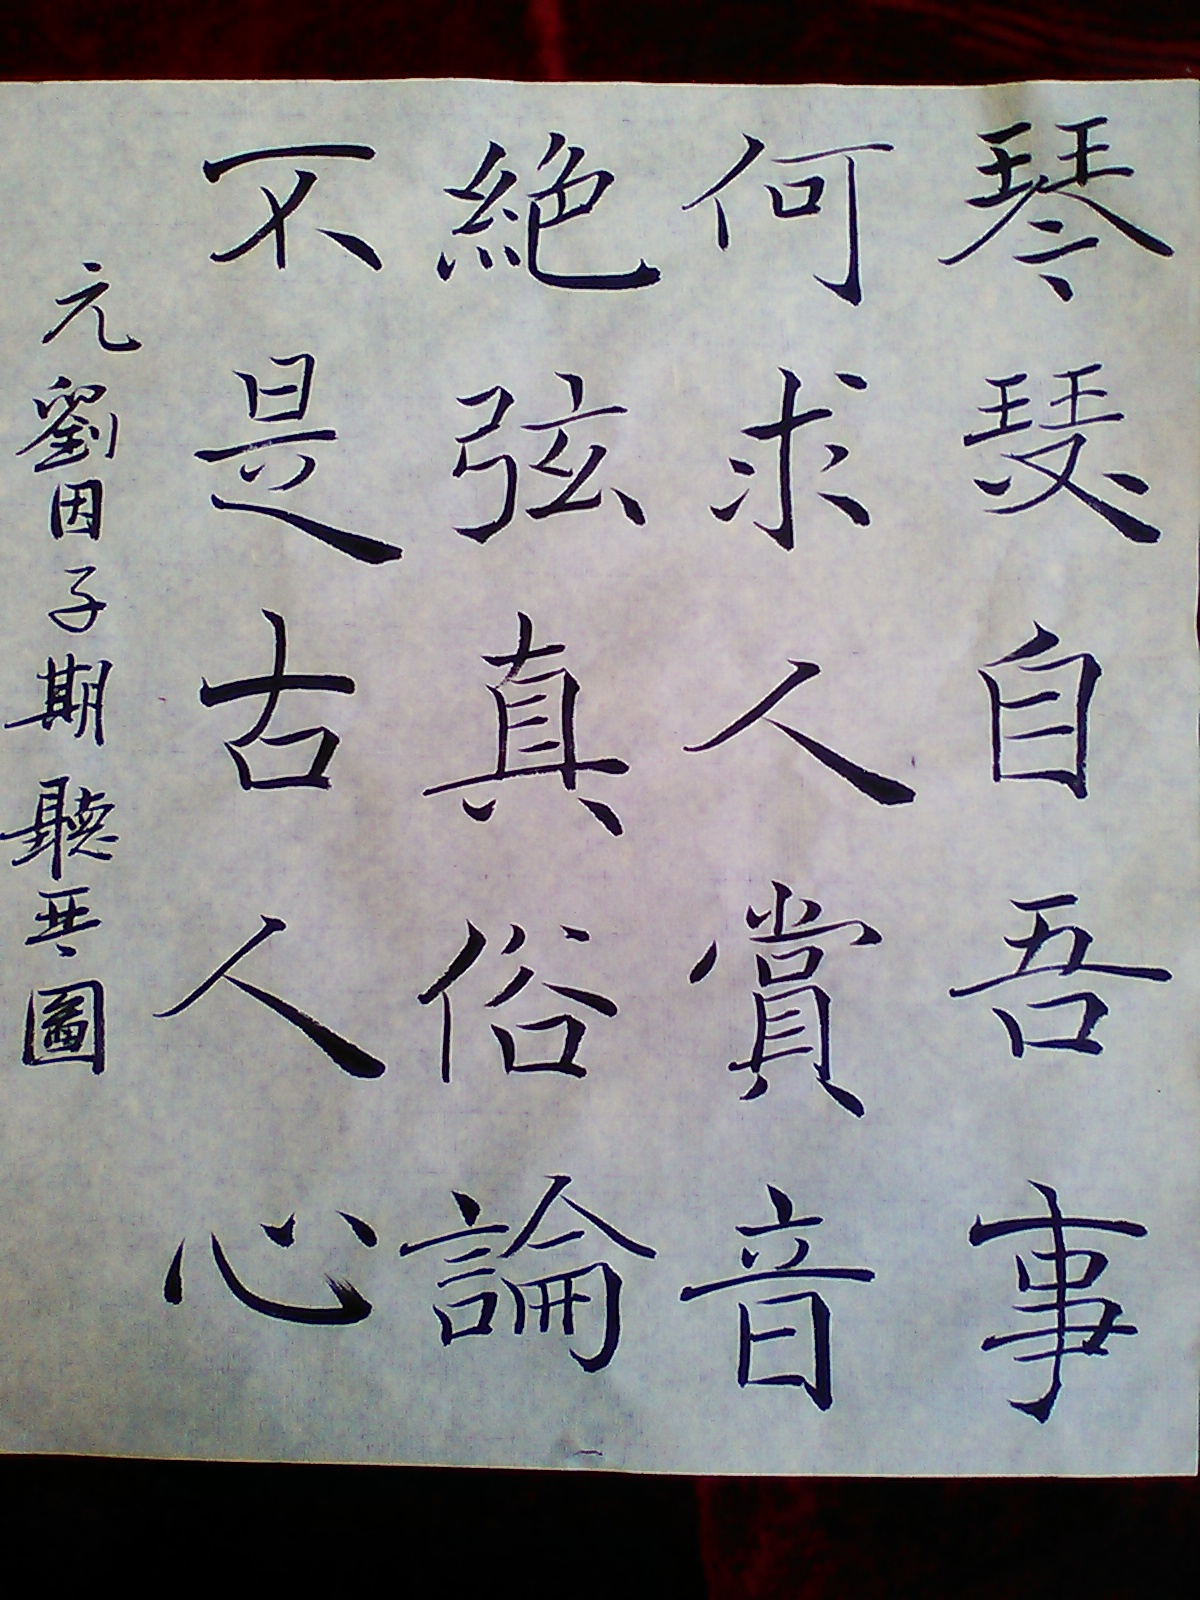 琴瑟自吾事
何求人賞音
絶弦真俗論
不是古人心
元劉因子期聽琴圖